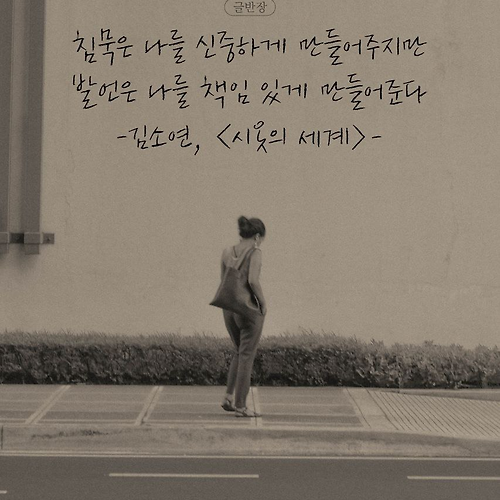 글반장
침묵은 나를 신중하게 만들어주지만
발언은 나를 책임 있게 만들어준다
-김소연, <시옷의 세계>-